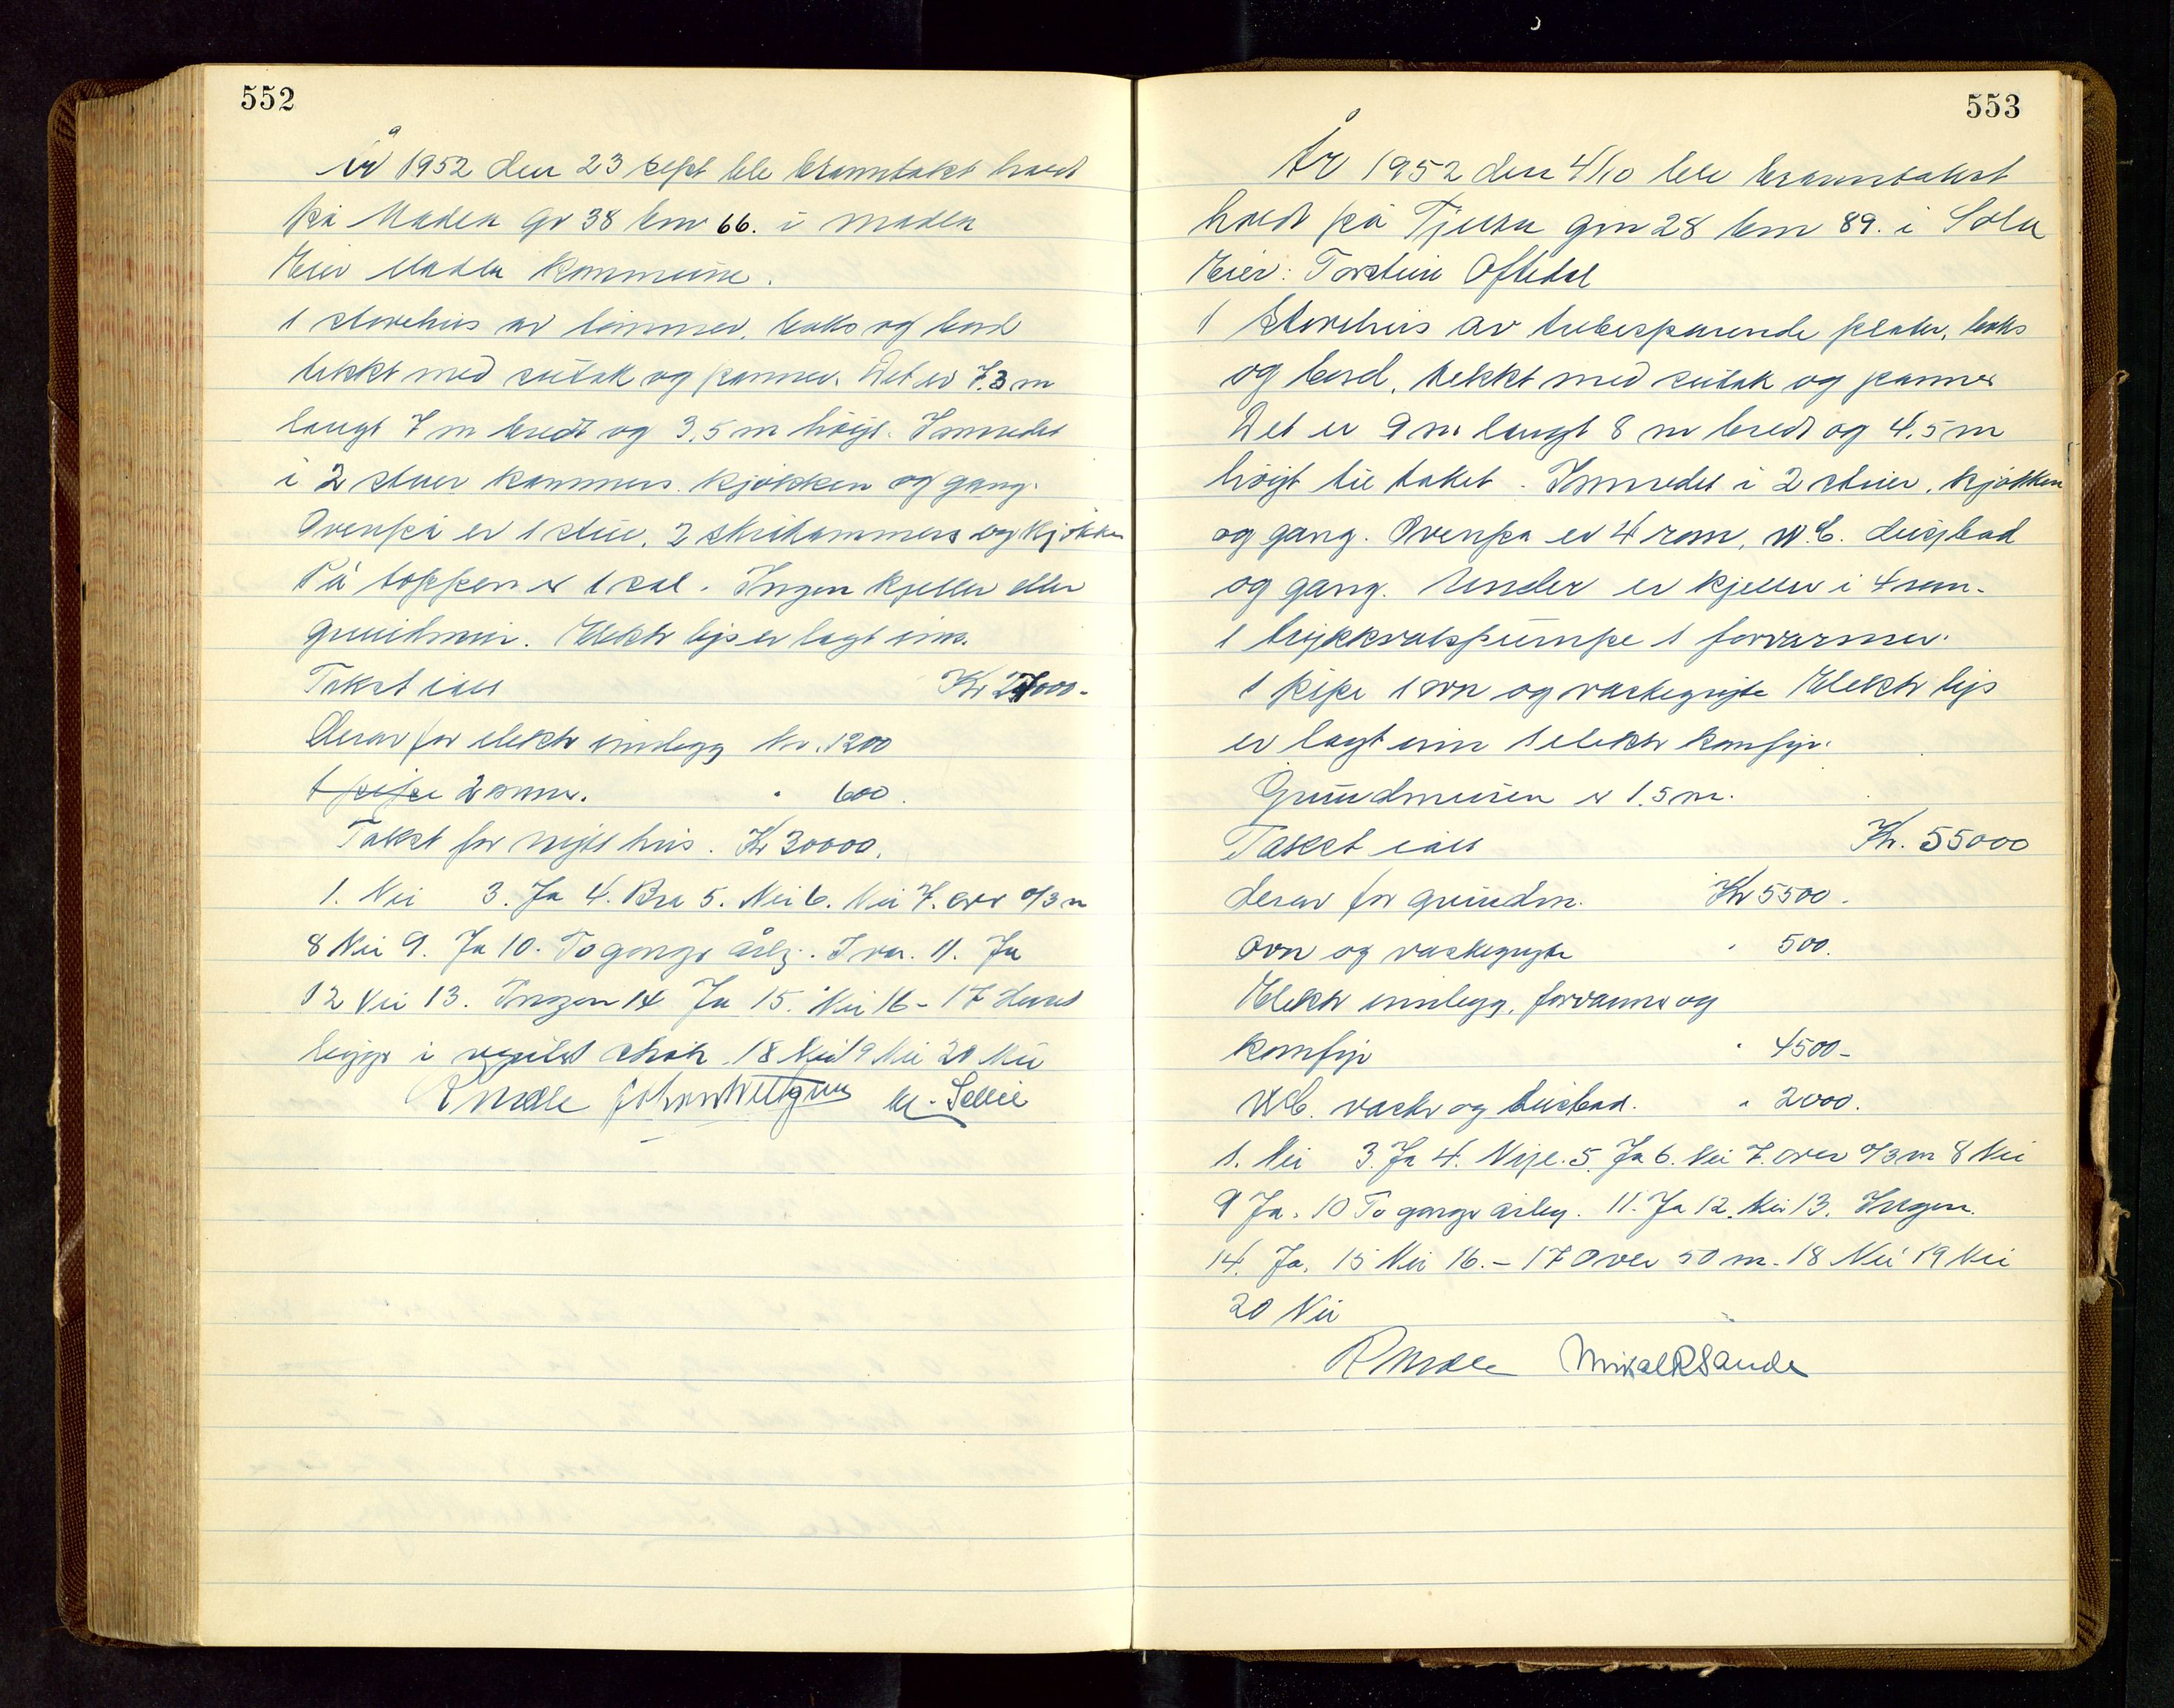 552
År 1952 den 23 sept ble branntakst holdt
på Madla gr 38 bnr 66. i Madla
Eier Madla kommune.
1 størehus av tømmer, boks og bord
tekkt med sutak og panner. Det er 7.3 m
langt 7 m bredt og 3,5 m høigt. Innredet
i 2 stuer kammers kjøkken og gang.
Ovenpå er 1 stue, 2 skråkammers og kjøkken
På toppen er 1 sal. Ingen kjeller eller
grunnmur. Elektr lys er lagt inn.
Takst ialt Kr 27000.
Derav for elektr innlegg kr. 1200
1 pipe 2 ovner. " 600.
Takst for nytt hus. Kr 30000.
1. Nei 3. Ja 4. Bra 5. Nei 6. Nei 7. over 0/3 m
8 Nei 9. Ja 10. To ganger årlig. I var. 11. Ja
12 Nei 13. Ingen 14 Ja 15. Nei 16 - 17 Huset
ligger i regulert strøk. 18 Nei 19 Nei 20 Nei
R Madle Johan
553
År 1952 den 4/10 ble branntakst
holdt på Tjelta gnr 28 bnr 89. i Sola
Eier: Torstein Oftedal
1 Størehus av trebesparende plater, boks
og bord, tekkt med sutak og panner
Det er 9 m langt 8 m bredt og 4,5 m
høigt til taket. Innredet i 2 stuer, kjøkken
og gang. Ovenpa er 4 rom, W.C. dusjbad
og gang. Under er kjeller i 4 rom.
1 trykkvatspumpe 1 forvarmer.
1 pipe 1 ovn og vaskegryte Elektr lys
er lagt inn 1 elektr komfyr.
Grundmuren er 1.5 m.
Takst ialt Kr. 55000
derav for grundm. Kr 5500.
Ovn og vaskegryte " 500.
Elektr innlegg, forvarmer og
komfyr " 4500-
WC. vask og dusbad. " 2000.
1. Nei 3. Ja 4. Nye. 5. Ja 6. Nei 7. over 0/3 m 8 Nei
9 Ja. 10 To ganger årleg. 11. Ja 12. Nei 13. Ingen.
14. Ja. 15 Nei 16. - 17 Over 50 m. 18 Nei 19 Nei
20 Nei
R Madle Mikal R Sande